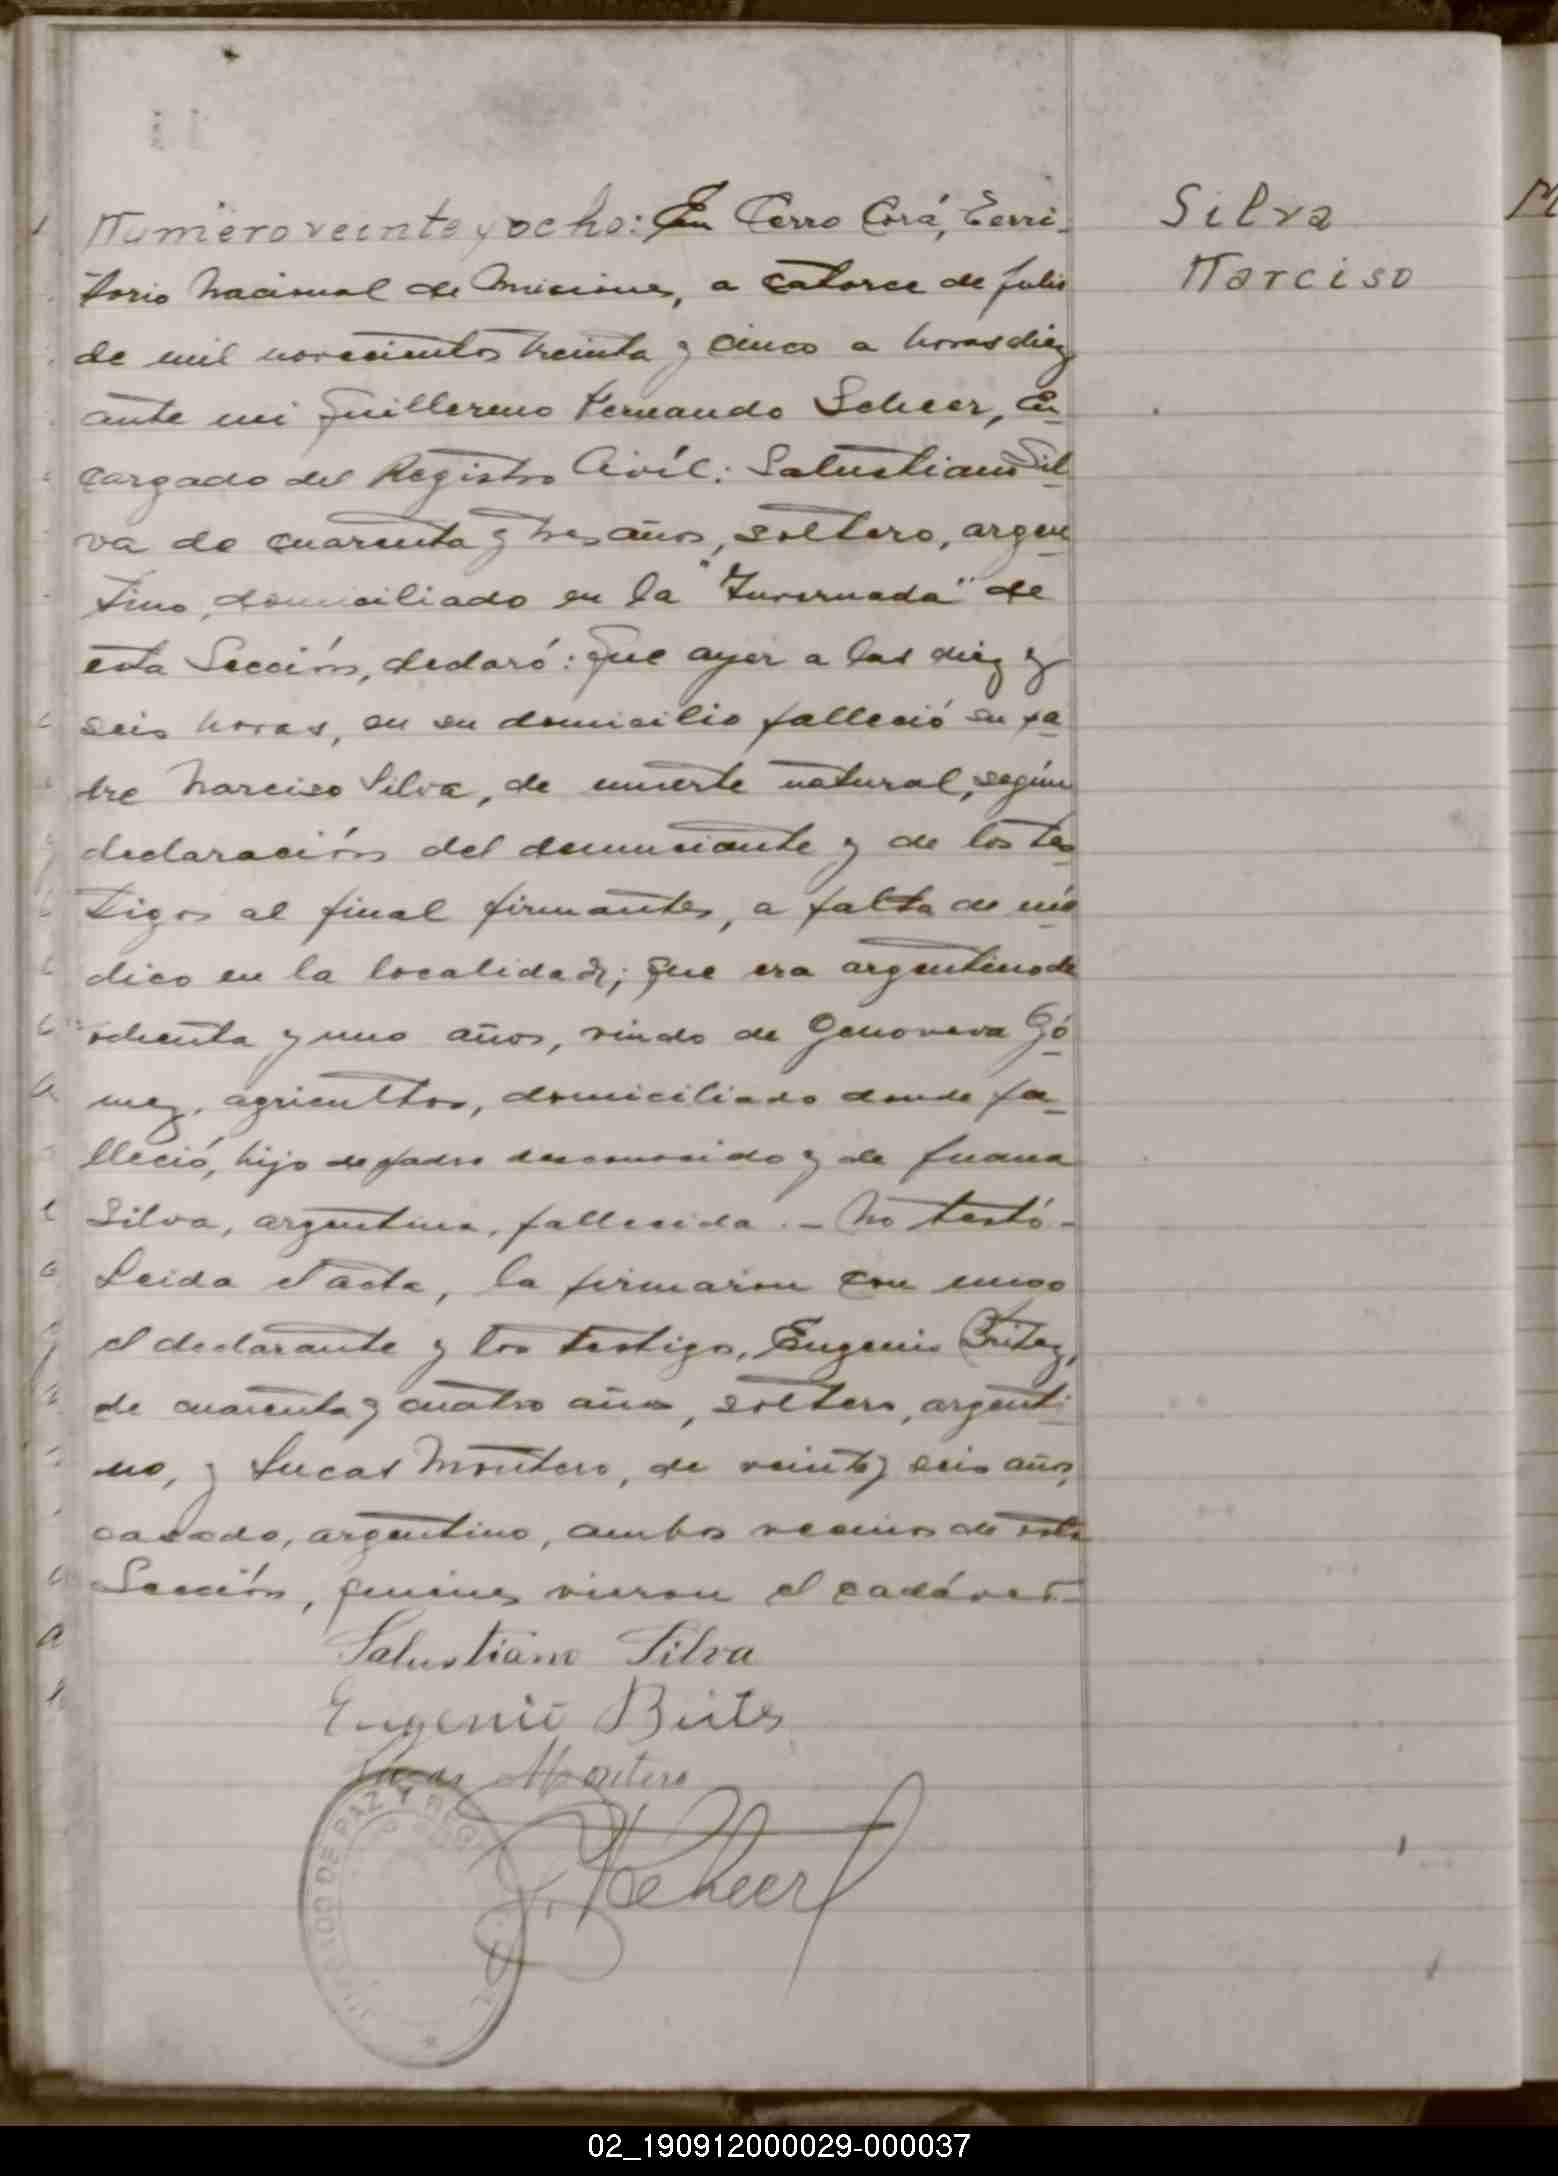 Numero veinte y ocho: En Cerro Corá, Terri-
torio Nacional de Misiones, a catorce de Julio
de mil novecientos treinta y cinco a horas diez
ante mi Guillermo Fernando Scheer, En-
cargado del Registro Civíl: Salustiano Sil-
va de cuarenta y tres años, soltero, argen-
tino, domiciliado en la "Invernada" de
esta Sección, declaró: Que ayer a las diez y
seis horas, en su domicilio falleció su pa-
dre Narciso Silva, de muerte natural, según
declaración del denunciante y de los tes-
tigos al final firmantes, a falta de mé-
dico en la localidad; que era argentino de
ochenta y uno años, viudo de Genoveva Gó-
mez, agricultor, domiciliado donde fa-
lleció, hijo de padre desconocido y de Juana
Silva, argentina, fallecida. - No testó -
Leida el acta, la firmaron con migo
el declarante y los testigos, Eugenio Britez,
de cuarenta y cuatro años, soltero, argenti-
no, y Lucas Montero, de veinte y seis años,
casado, argentino, ambos vecinos de esta
Sección, quienes vieron el cadáver.-
Salustiano Silva
Eugenio Brites
Lucas Montero
Scheer
JUZGADO DE PAZ Y REG
Silva
Narciso
02_190912000029-000037